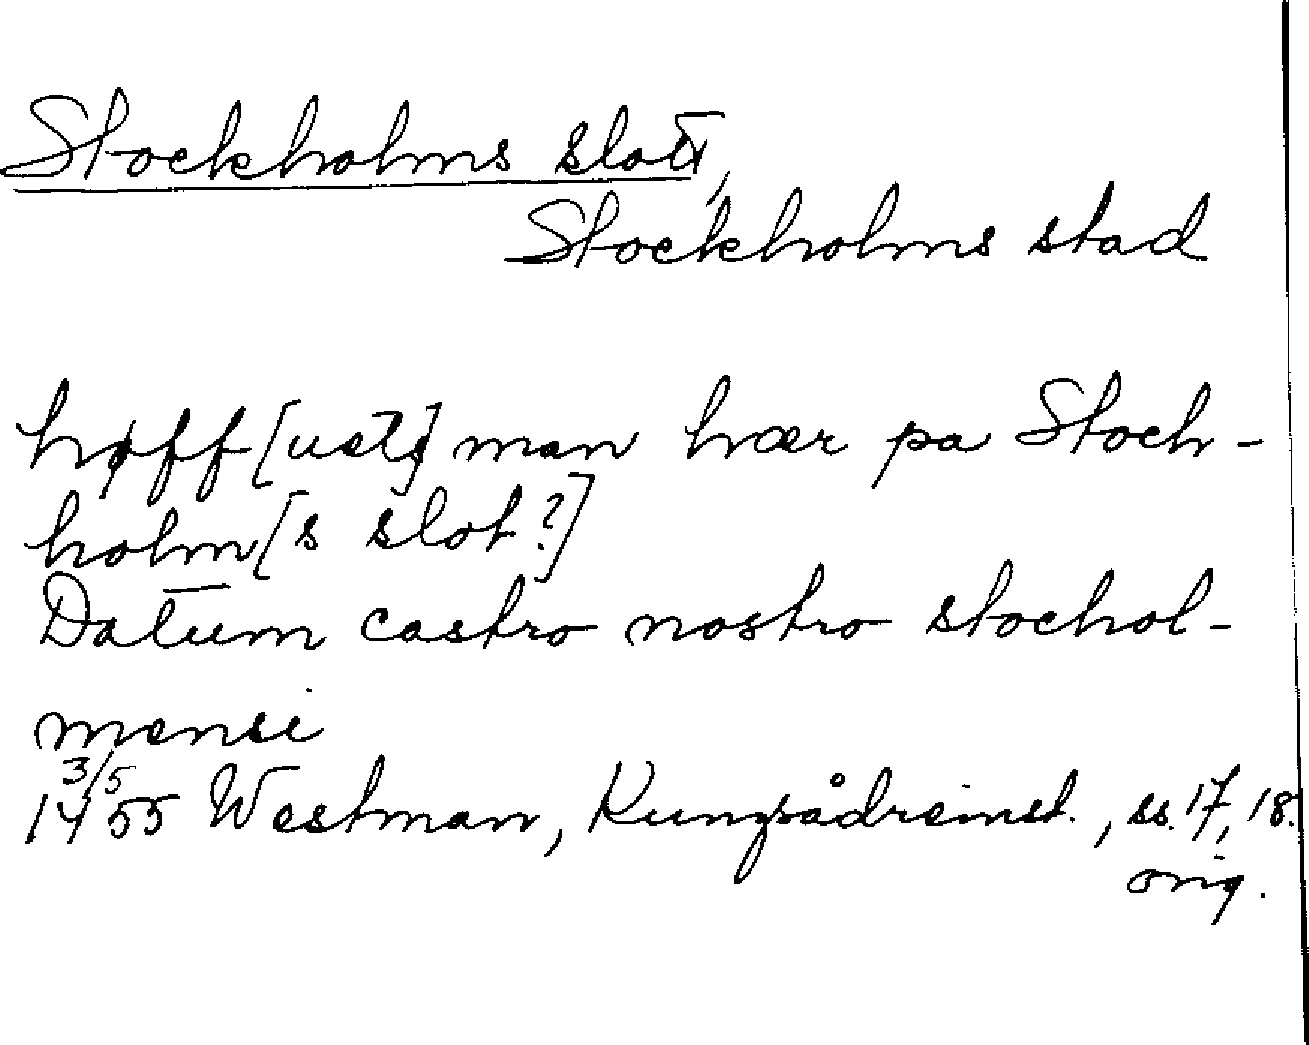 Stockholms slott,
Stockholms stad
høff[uetz]man hær pa Stoch-
holm[s slot?]
Datum castro nostro stochol-
mensi
3/5
1455 Westman, Kungsådreinst., ss. 17, 18.
orig.